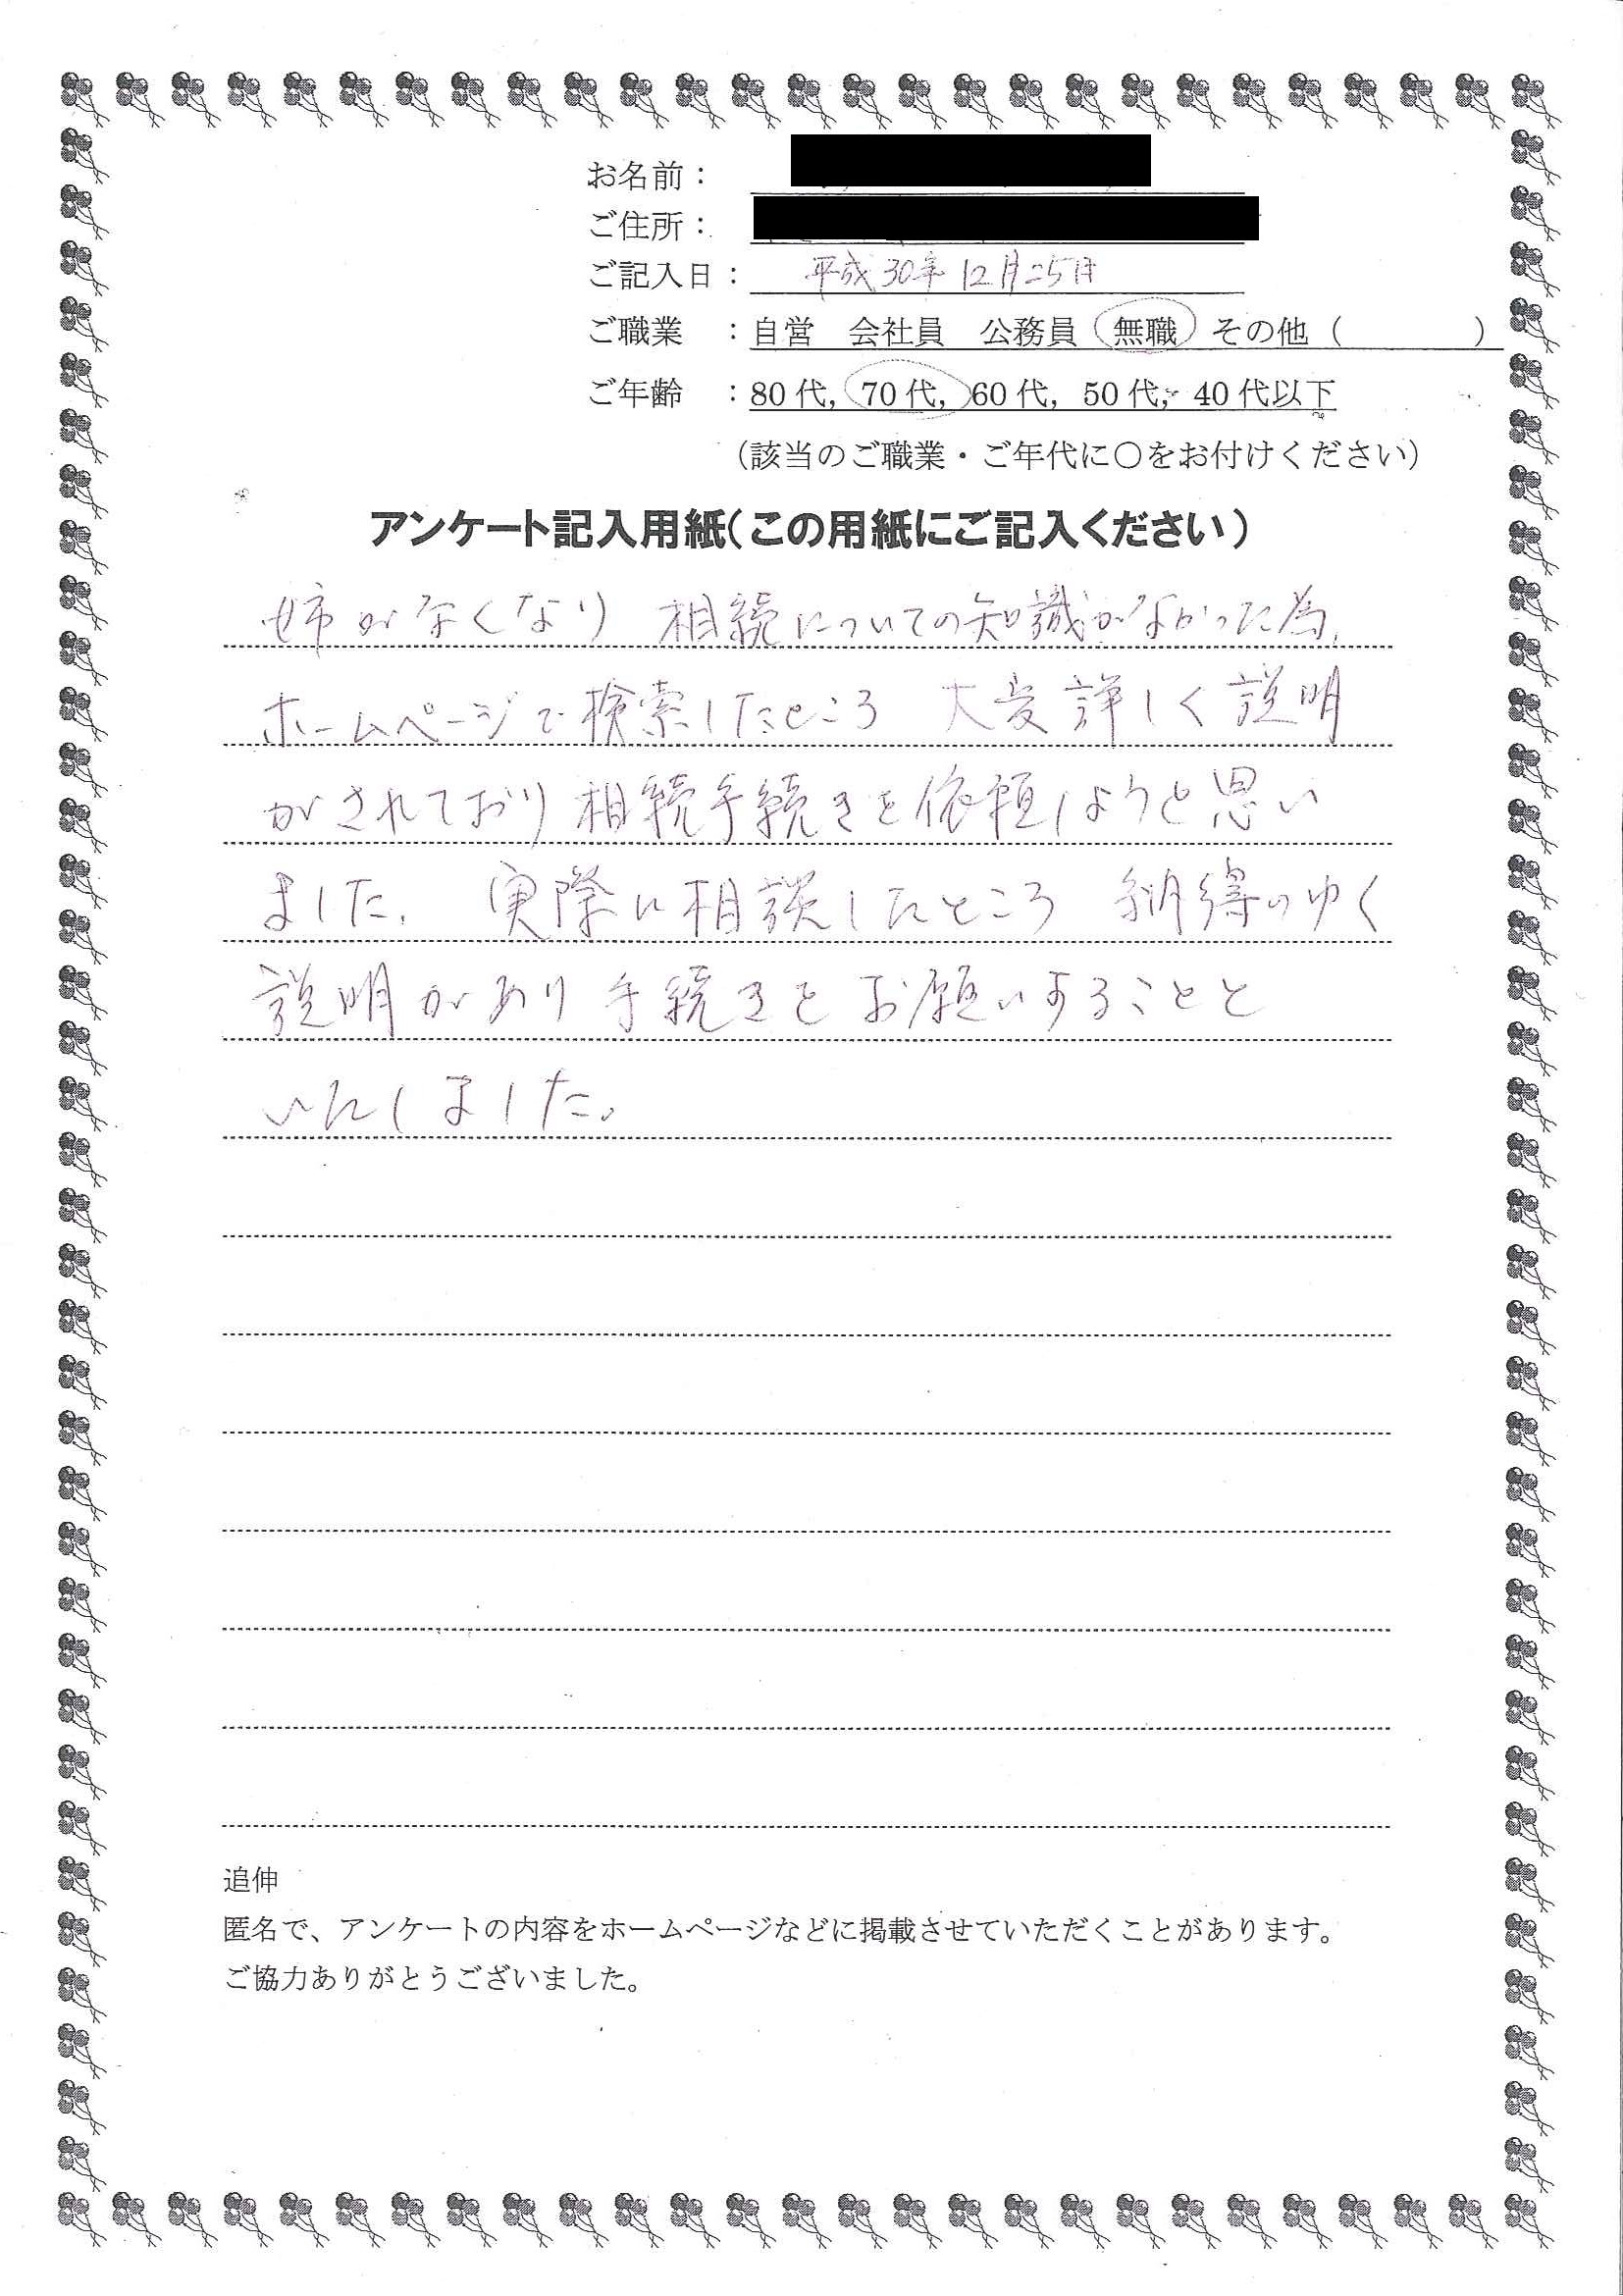 お名前：
ご住所：
ご記入日：平成30年12月25日
ご職業　：自営　会社員　公務員　無職　その他（　　　　）
ご年齢　：80代，70代，60代，50代，40代以下
（該当のご職業・ご年代に○をお付けください）
アンケート記入用紙（この用紙にご記入ください）
姉がなくなり 相続についての知識がなかった為、
ホームページで検索したところ 大変詳しく説明
がされており相続手続きを依頼しようと思い
ました、 実際に相談したところ 納得のゆく
説明があり手続きをお願いすることと
いたしました。
追伸
匿名で、アンケートの内容をホームページなどに掲載させていただくことがあります。
ご協力ありがとうございました。